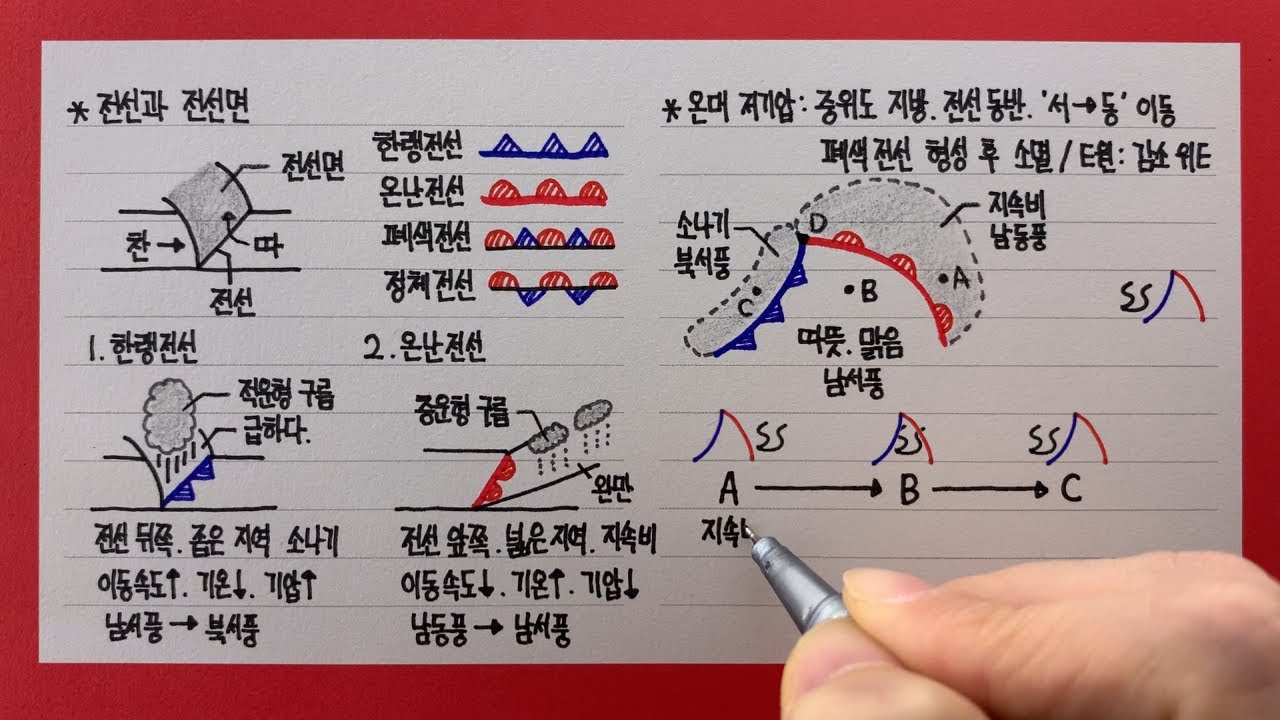 * 전선과 전선면
전선면
찬
따
전선
한랭전선
온난전선
폐색전선
정체전선
1. 한랭전선
적운형 구름
급하다.
전선 뒤쪽. 좁은 지역 소나기
이동속도↑. 기온↓. 기압↑
남서풍 → 북서풍
2. 온난전선
층운형 구름
완만
전선 앞쪽. 넓은 지역. 지속비
이동속도↓. 기온↑. 기압↓
남동풍 → 남서풍
* 온대 저기압: 중위도 지방. 전선 동반. '서→동' 이동
폐색전선 형성 후 소멸 / E원: 감소 위E
소나기
북서풍
D
지속비
남동풍
A
B
C
따뜻. 맑음
남서풍
SS
SS
SS
SS
A → B → C
지속비